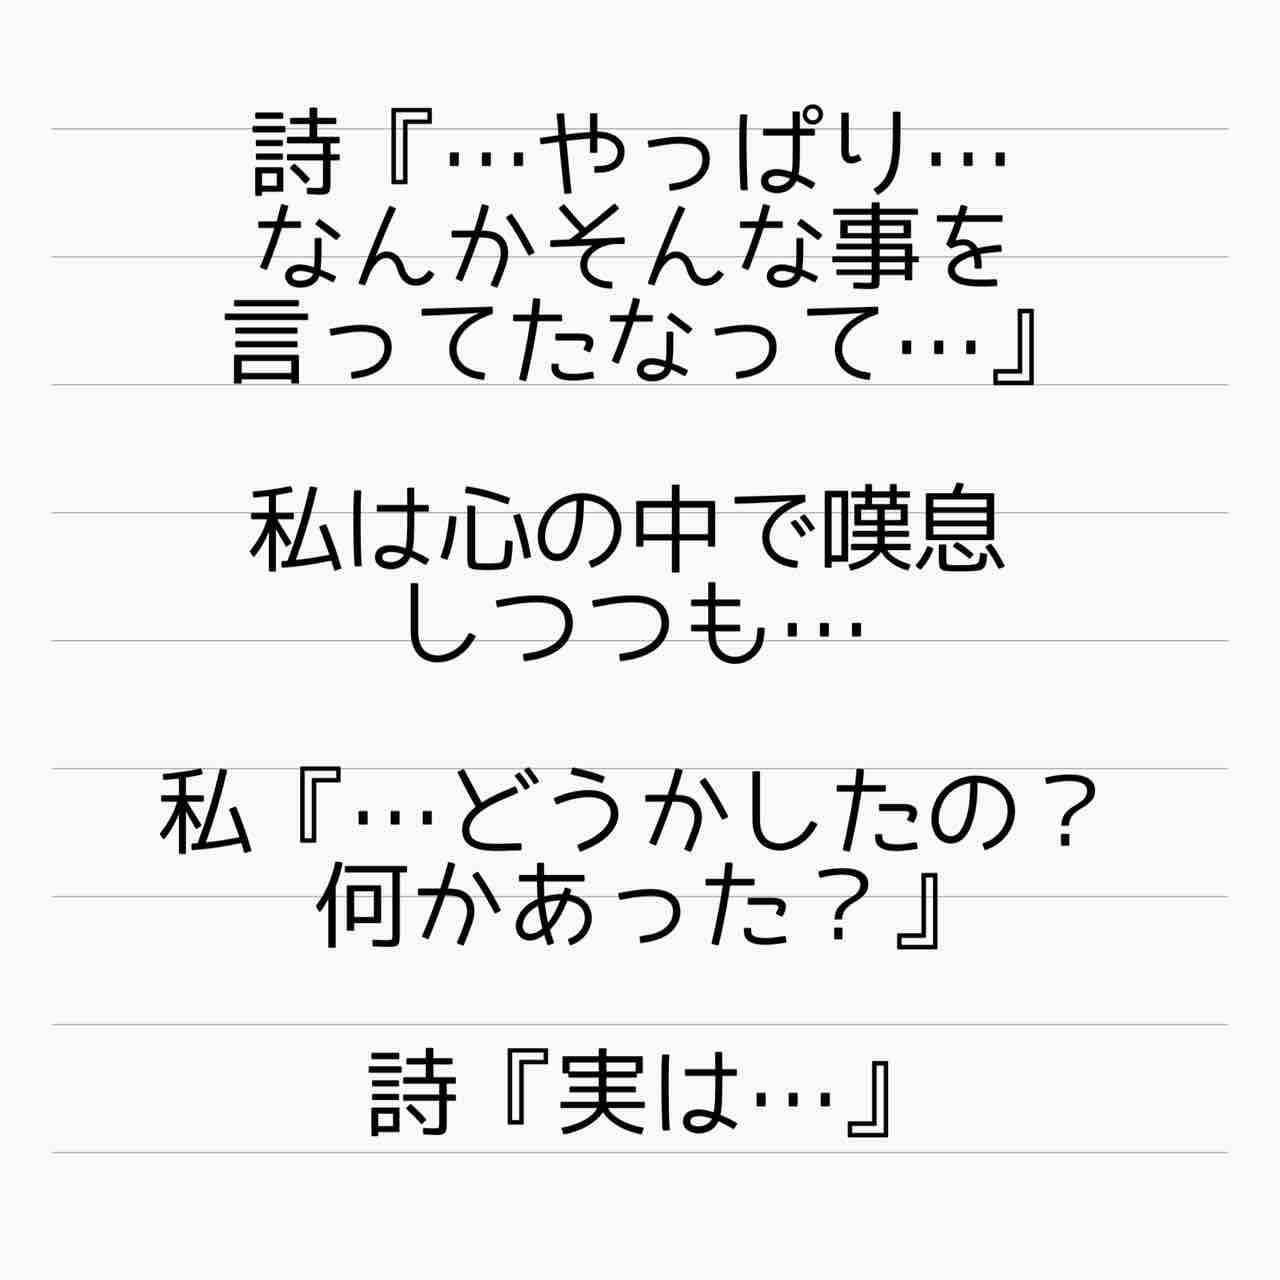 詩『…やっぱり…
なんかそんな事を
言ってたなって…』
私は心の中で嘆息
しつつも…
私『…どうかしたの？
何かあった？』
詩『実は…』